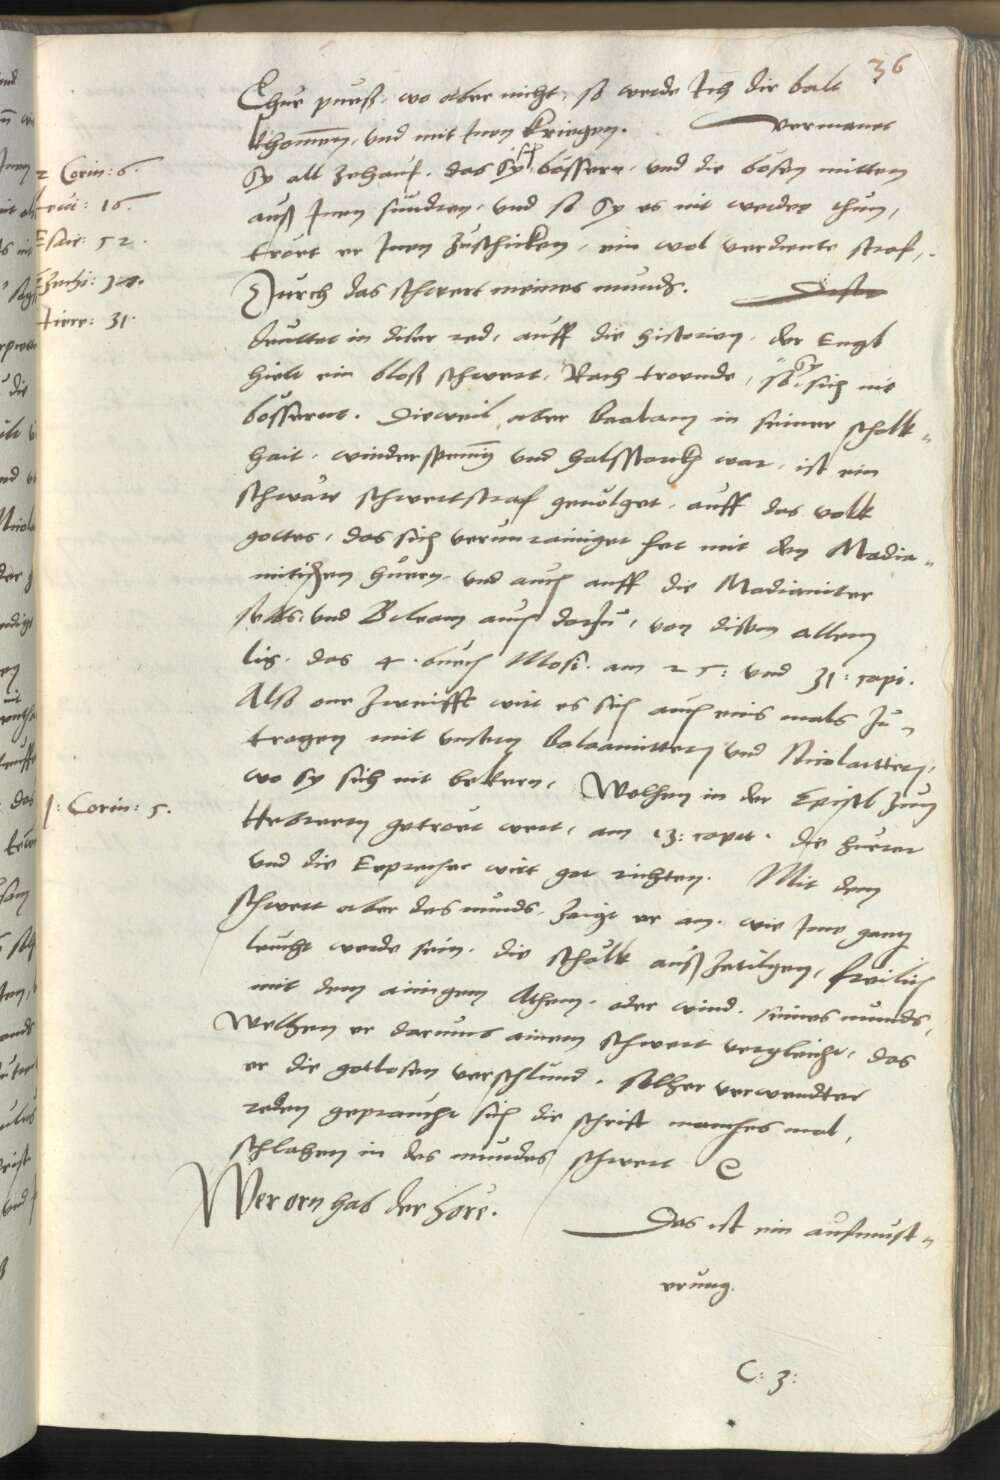 36
Thue pueß, wo aber nicht, so werde Ich dir balt
khomen, und mit Inen kriegen. vermanet
Sy all zehauf, das sy sich bössern, und die bösen mitten
auß Inen sündren, und so Sy es nit werden thun,
troet er Inen zuschicken, ein wol verdiente straf,
Durch das schwert meines munds.
deuttet in diser red, auff die historien, der Engl
hielt ein bloß schwert, Rach troende, so sy sich nit
bössernt. Dieweil aber Baalam in seiner schalk-
hait, widerspenig und halsstarkh war, ist ein
schwäre schwertstraf gevolget, auff das volk
gottes, das sich verunrainiget het mit den Madia-
nitischen huern, und auch auff die Madianiter
selbs, und Beleam auch darzu, von disem allem
lis, das 4. buech Mosi. am 25: und 31: capi.
Also one zweifft wirt es sich auch eins mals zu-
tragen mit unsern balaamittern und Nicolaittern,
wo sy sich nit bekern, Welhen in der Epistl zun
Hebreern getroet wert, am 13: capit. die huerer
und die Eeprecher wirt got richten. Mit dem
schwert aber des munds, zaigt er an, wie Ime gantz
leicht werde sein, die schälk auß zetilgen, freilich
mit dem ainigem Athem, oder wind, seines munds,
Welhen er darumb ainem schwert vergleicht, das
er die gotlosen verschlind. solher verwendter
reden gepraucht sich die schrift manches mal,
schlahen in des mundes schwert
Wer orn hab der höre.
Das ist ein aufmust-
erung.
C: 3:
2 Corin: 6.
16.
Esaie: 52.
Ezechi:
Hiere: 31.
1: Corin: 5.